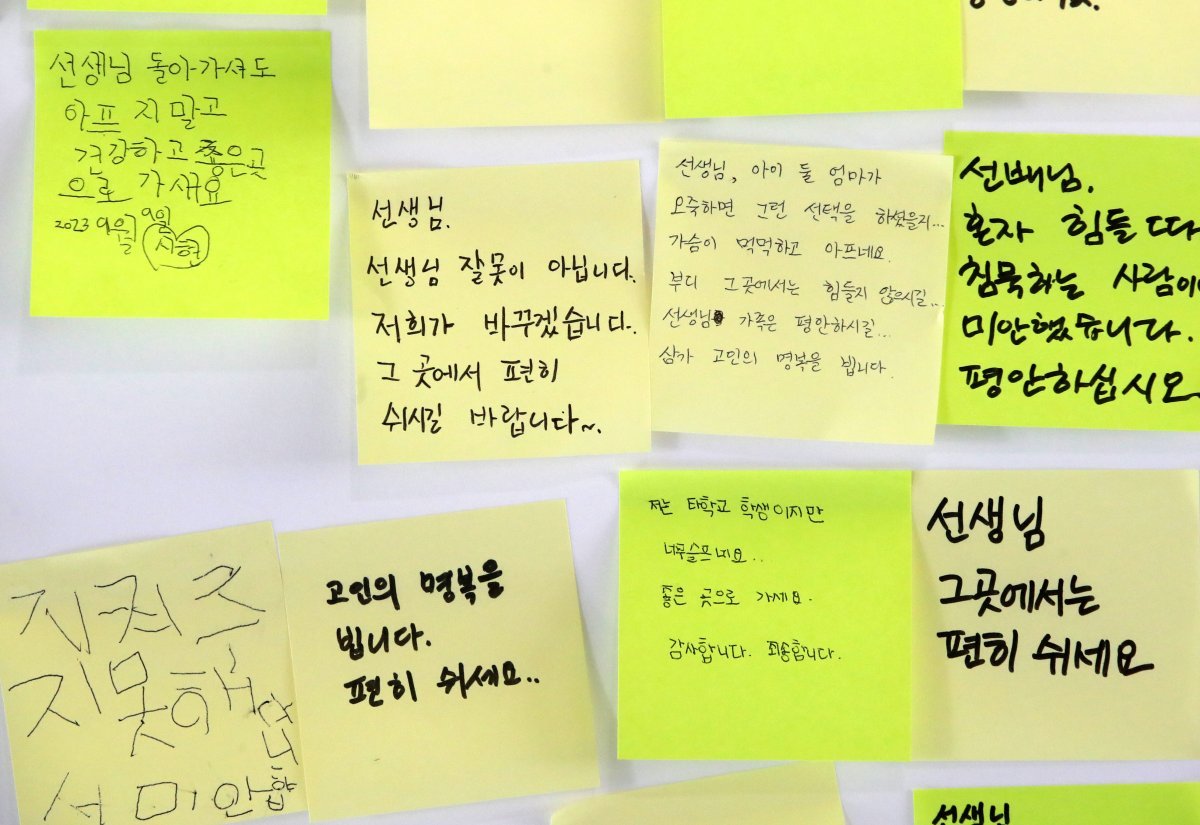 선생님 돌아가셔도
아프지 말고
건강하고 좋은곳
으로 가새요
2023 9월 9일
시현
선생님.
선생님 잘못이 아닙니다.
저희가 바꾸겠습니다.
그 곳에서 편히
쉬시길 바랍니다~.
선생님, 아이 둘 엄마가
오죽하면 그런 선택을 하셨을지...
가슴이 먹먹하고 아프네요.
부디 그곳에서는 힘들지 않으시길...
선생님 가족은 평안하시길...
삼가 고인의 명복을 빕니다.
선배님.
혼자 힘들 때
침묵하는 사람이
미안했습니다.
평안하십시오.
지켜주
지 못해
서 미안합
니다
고인의 명복을
빕니다.
편히 쉬세요..
저는 타학교 학생이지만
너무슬프네요..
좋은 곳으로 가세요.
감사합니다. 죄송합니다.
선생님
그곳에서는
편히 쉬세요
선생님